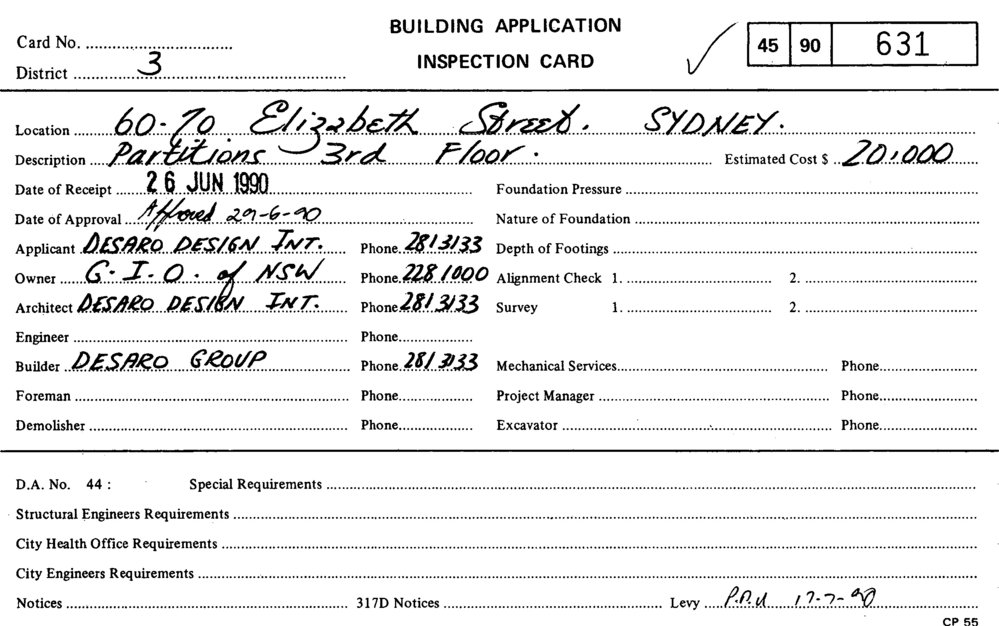 BUILDING APPLICATION
INSPECTION CARD
45 90 631
Card No.
District 3
Location 60-70 Elizabeth Street. SYDNEY.
Description Partitions 3rd Floor.
Estimated Cost $ 20,000
Date of Receipt 26 JUN 1990
Foundation Pressure
Date of Approval Approved 29-6-90
Nature of Foundation
Applicant DESARO DESIGN INT. Phone 281 3133
Depth of Footings
Owner G.I.O. of NSW Phone 228 1000
Alignment Check 1. 2.
Architect DESARO DESIGN INT. Phone 281 3133
Survey 1. 2.
Engineer Phone
Builder DESARO GROUP Phone 281 3133
Mechanical Services Phone
Foreman Phone
Project Manager Phone
Demolisher Phone
Excavator Phone
D.A. No. 44 : Special Requirements
Structural Engineers Requirements
City Health Office Requirements
City Engineers Requirements
Notices 317D Notices Levy 17-7-90
CP 55